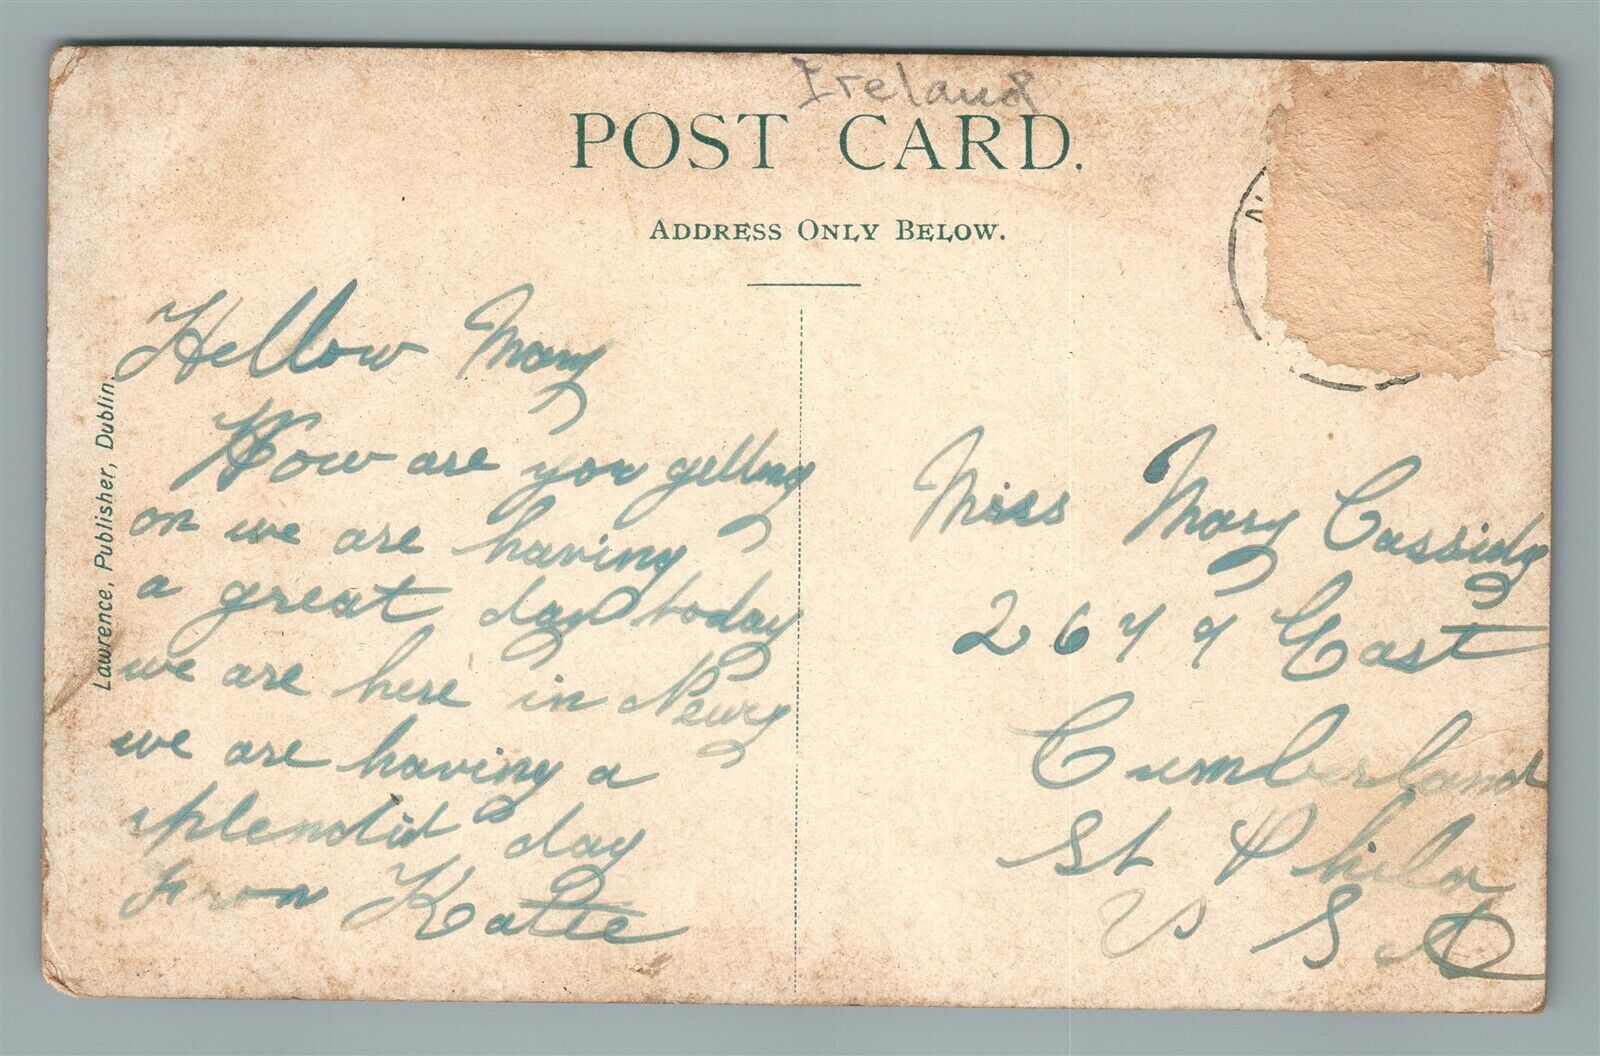 Ireland
POST CARD.
ADDRESS ONLY BELOW.
Lawrence, Publisher, Dublin.
Hellow Mary
How are you getting
on we are having
a great day today
we are here in Newry
we are having a
splendid day
from Katie
Miss Mary Cassidy
East
Cumberland
St Phila
U S A